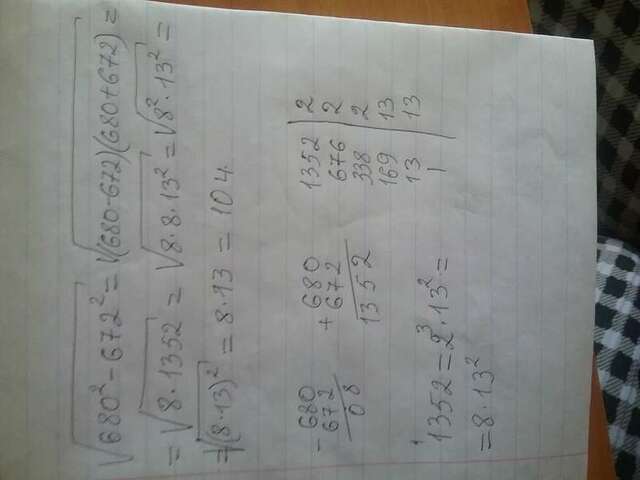 √(680² - 672²) = √((680-672)(680+672)) =
= √(8·1352) = √(8·8·13²) = √(8²·13²) =
= √((8·13)²) = 8·13 = 104.
- 680
672
08
+ 680
672
1352
1352 | 2
676 | 2
338 | 2
169 | 13
13 | 13
1
1352 = 2³·13² =
= 8·13²